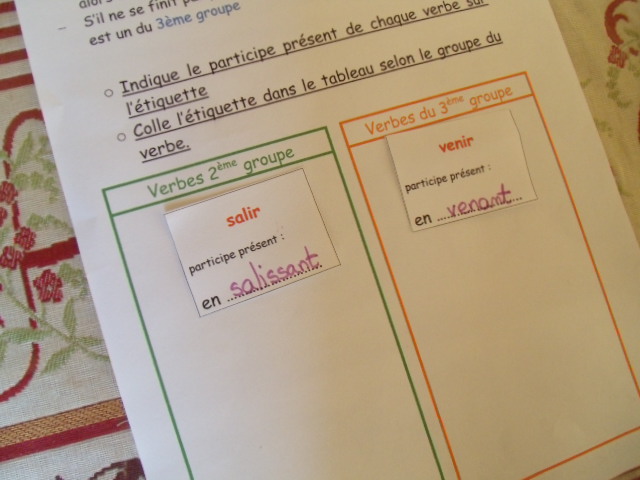 S'il ne se finit
est un du 3ème groupe
○ Indique le participe présent de chaque verbe sur
l'étiquette
○ Colle l'étiquette dans le tableau selon le groupe du
verbe.
Verbes 2ème groupe
salir
participe présent :
en salissant
Verbes du 3ème groupe
venir
participe présent :
en venant